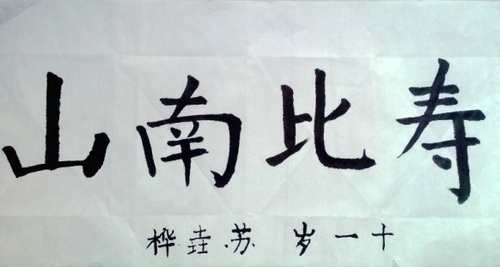 寿比南山
十一岁 苏垚桦